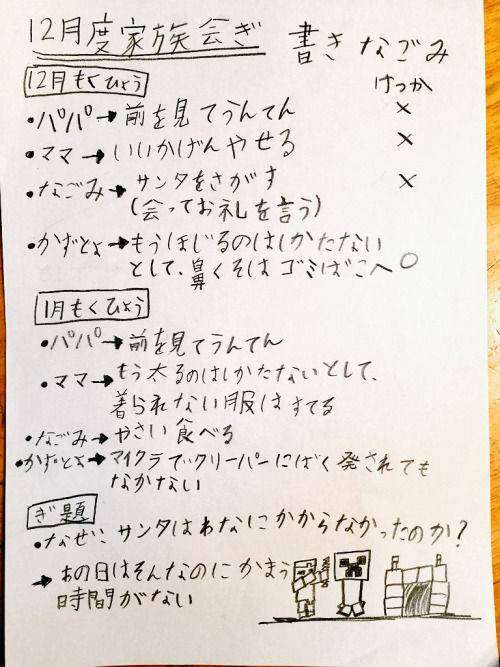 12月度家族会ぎ
書き なごみ
12月もくひょう
けっか
・パパ→前を見てうんてん ×
・ママ→いいかげんやせる ×
・なごみ→サンタをさがす ×
(会ってお礼を言う)
・かずとよ→もうほじるのはしかたない
として、鼻くそはゴミばこへ ○
1月もくひょう
・パパ→前を見てうんてん
・ママ→もう太るのはしかたないとして、
着られない服はすてる
・なごみ→やさい食べる
・かずとよ→マイクラでクリーパーにばく発されても
なかない
ぎ題
・なぜ、サンタはわなにかからなかったのか?
→あの日はそんなのにかまう
時間がない